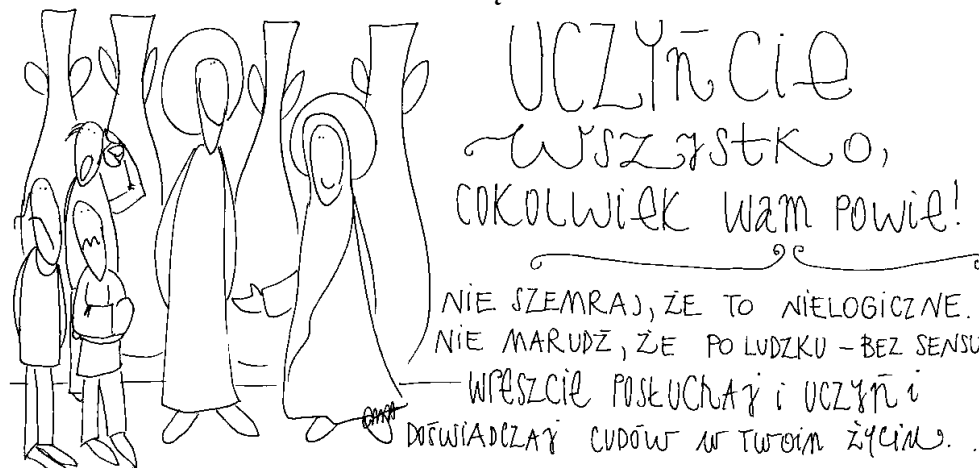 UCZYńCiE
WSZYSTKO,
COKOLWiEK Wam POWiE!
NIE SZEMRAJ, ŻE TO NIELOGICZNE.
NIE MARUDŹ, ŻE PO LUDZKU – BEZ SENSU
WRESZCiE POSŁUCHAJ i UCZYń i
DOŚWIADCZAJ CUDÓW W TWOIM ŻYCIU.